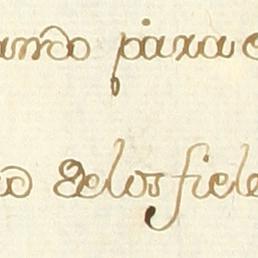 ando para
delos fiele